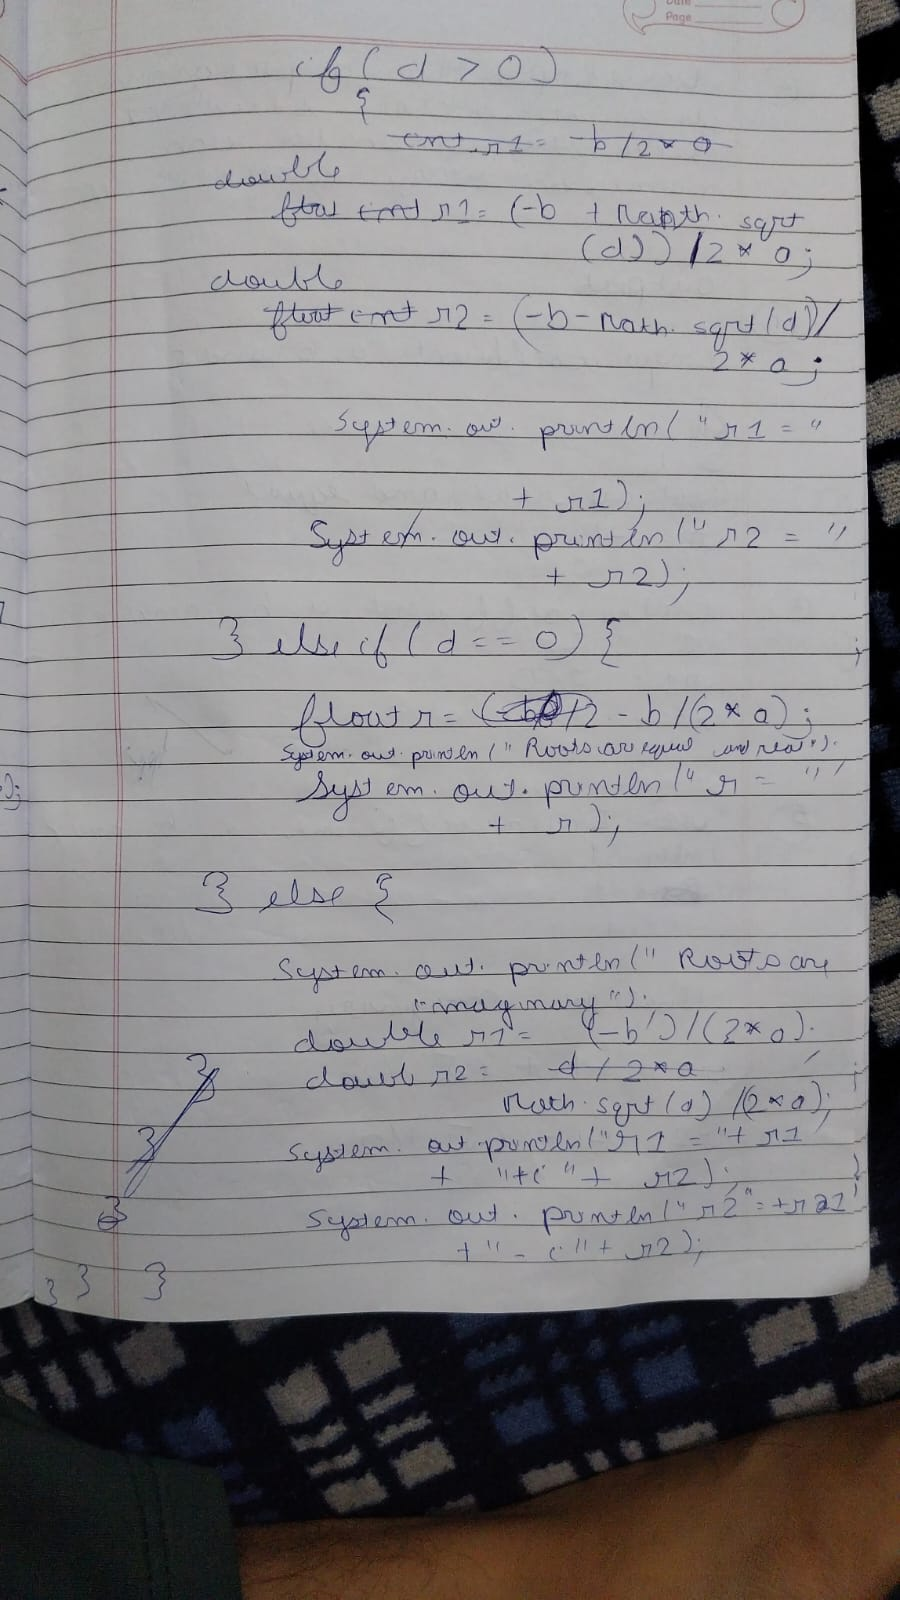 Date
Page
if ( d > 0 )
{
int r1 = b / 2 * a
double
float int r1 = (-b + Math. sqrt
(d)) / 2 * a ;
double
float int r2 = (-b - Math. sqrt (d)) /
2 * a ;
System. out. println ( " r1 = "
+ r1 );
System. out. println ( " r2 = "
+ r2 );
} else if ( d == 0 ) {
float r = / 2 - b / (2 * a) ;
System. out. println ( " Roots are equal and real " ).
System. out. println ( " r = "
+ r );
} else {
System. out. println ( " Roots are
imaginary " ).
double r1 = (-b) / (2 * a).
doubl r2 = d / 2 * a
Math. sqrt (d) / (2 * a);
}
System. out. println ( " r1 = " + r1
}
+ "+i " + r2 );
System. out. println ( " r2 " = + r1
}
+ " - i " + r2 );
} } }